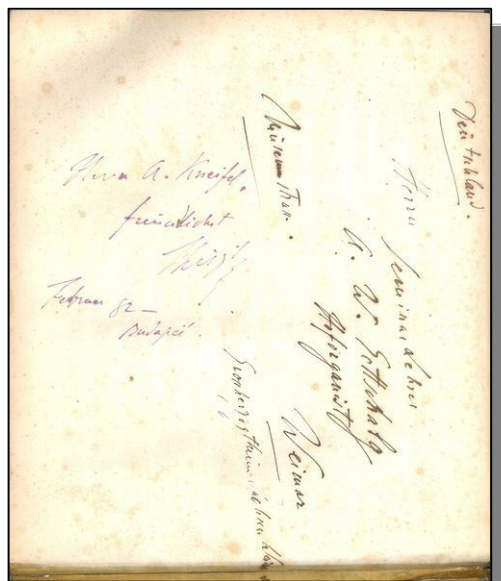 Herrn A. Kneifel.
freundlichst
Februar 82 –
Budapest.
Deutschland.
Herrn Seminarlehrer
A. W. Gottschalg
Hoforganist
Weimar
Museum